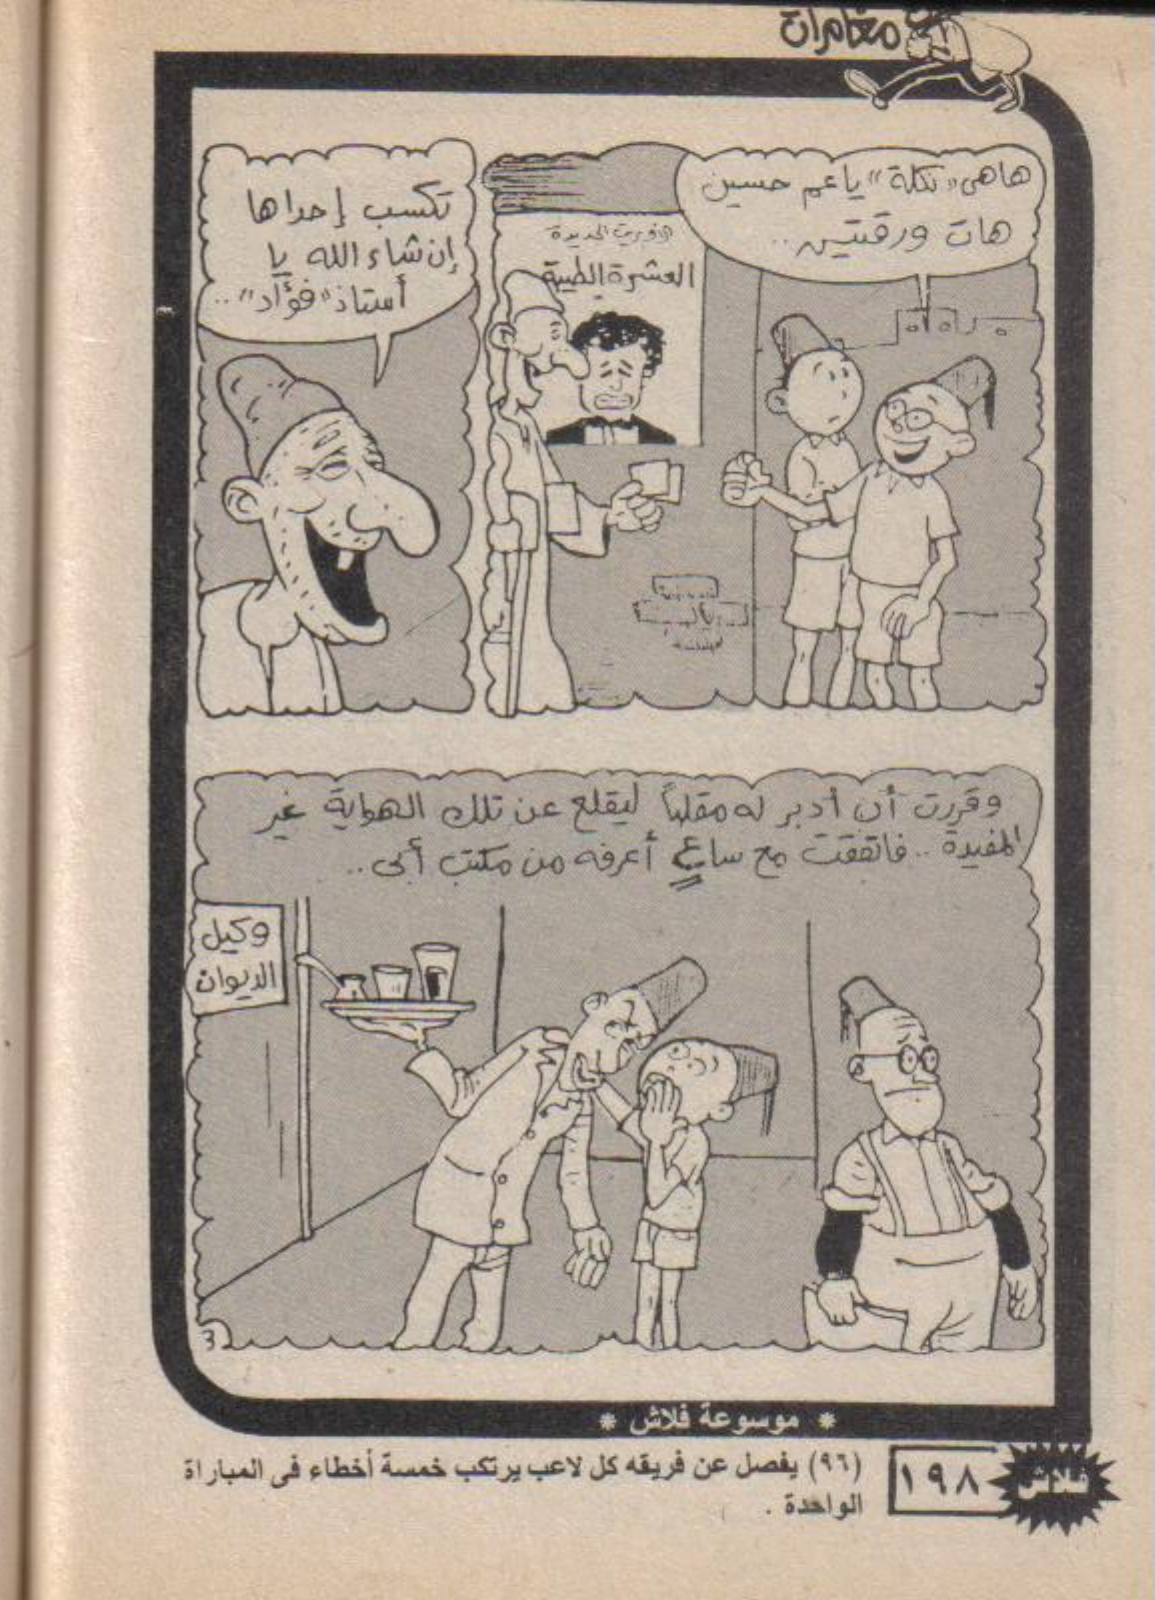 مغامرات
هاهى «نكلة» ياعم حسين
هات ورقتين..
الأوبريت الجديدة
العشرة الطيبة
تكسب إحداها
إن شاء الله يا
أستاذ «فؤاد»..
وقررت أن أدبر له مقلباً ليقلع عن تلك الهواية غير
المفيدة.. فاتفقت مع ساعٍ أعرفه من مكتب أبى..
وكيل
الديوان
3
* موسوعة فلاش *
فلاش
١٩٨
(٩٦) يفصل عن فريقه كل لاعب يرتكب خمسة أخطاء فى المباراة
الواحدة .